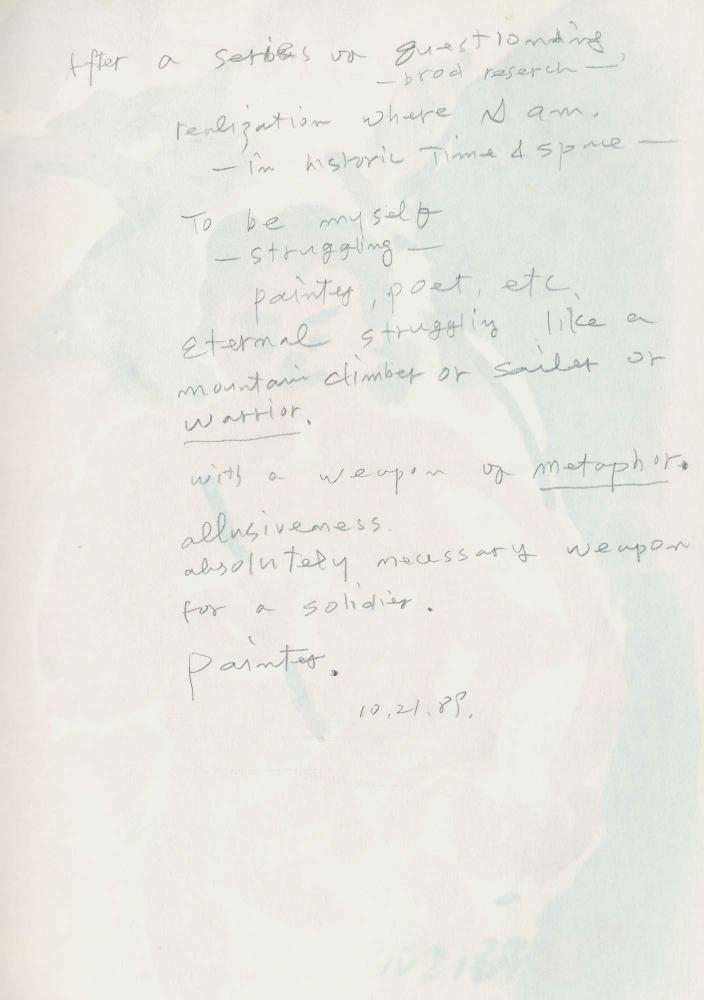 After a series of questioning,
— brod reserch —
realization where I am.
— in historic Time & space —
To be myself
— struggling —
painter, poet, etc.
Eternal struggling like a
mountain climber or sailer or
warrior.
with a weapon of metaphor.
allusiveness.
absolutely necessary weapon
for a solidier.
painter.
10.21.89.